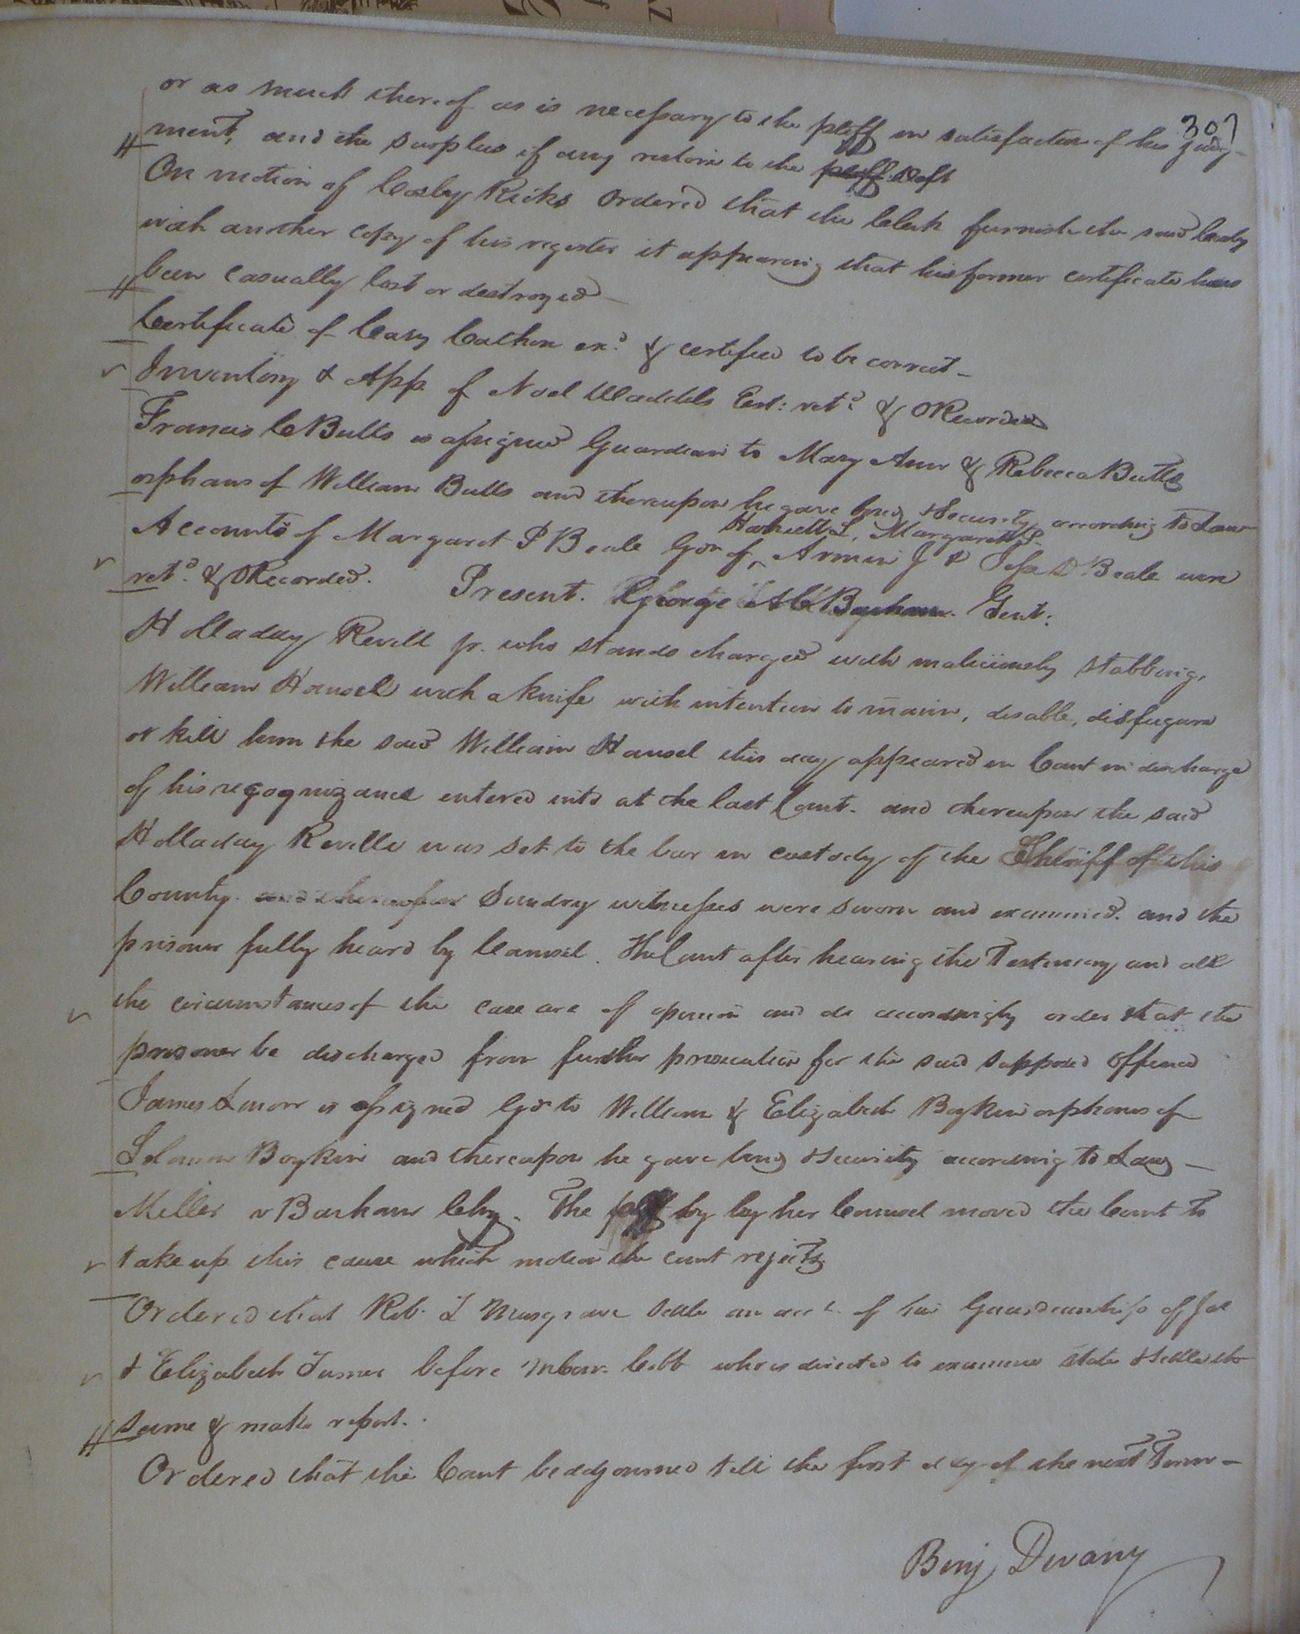 307
or as much thereof as is necessary to the pltff in satisfaction of his judg-
ment, and the surplus if any return to the pltff Deft
On motion of Cosby Ricks Ordered that the Clerk furnish the said Cosby
with another copy of his register it appearing that his former certificate has
been casually lost or destroyed—
Certificate of Cary exd. & certified to be correct—
Inventory & App. of Noel Waddels Est: retd. & ORecorded
Francis C Butts is assigned Guardian to Mary Ann & Rebecca Butts
orphans of William Butts and thereupon he gave bond & Security according to Law
Harriett L, Margaret S.
Accounts of Margaret P Beale Gdn of, J & D. Beale were
retd. & ORecorded. Present. George A C Barham. Gent:
Holladay Revill jr. who stands charged with maliciously stabbing,
William Hansel with a knife with intention to maim, disable, disfigure
or kill him the said William Hansel this day appeared in Court in discharge
of his recognizance entered into at the last Court. and thereupon the said
Holladay Revill was set to the bar in custody of the Sheriff of this
County. and thereupon Sundry witnesses were sworn and examined. and the
prisoner fully heard by Counsel. The Court after hearing the Testimony and all
the circumstances of the case are of opinion and do accordingly order that the
prisoner be discharged from further prosecution for the said supposed offence
James is assigned Gdn to William & Elizabeth Boykin orphans of
Boykin and thereupon he gave bond & security according to Law—
Miller v Barham Chy. The by her Counsel moved the Court to
take up this cause which motion the court rejects
Ordered that Rob. Musgrave settle an acct. of his Guardianship of
& Elizabeth Turner before Cobb who is directed to examine state & settle the
same & make report.
Ordered that the Court be adjourned till the first day of the next Term—
Benj Devany